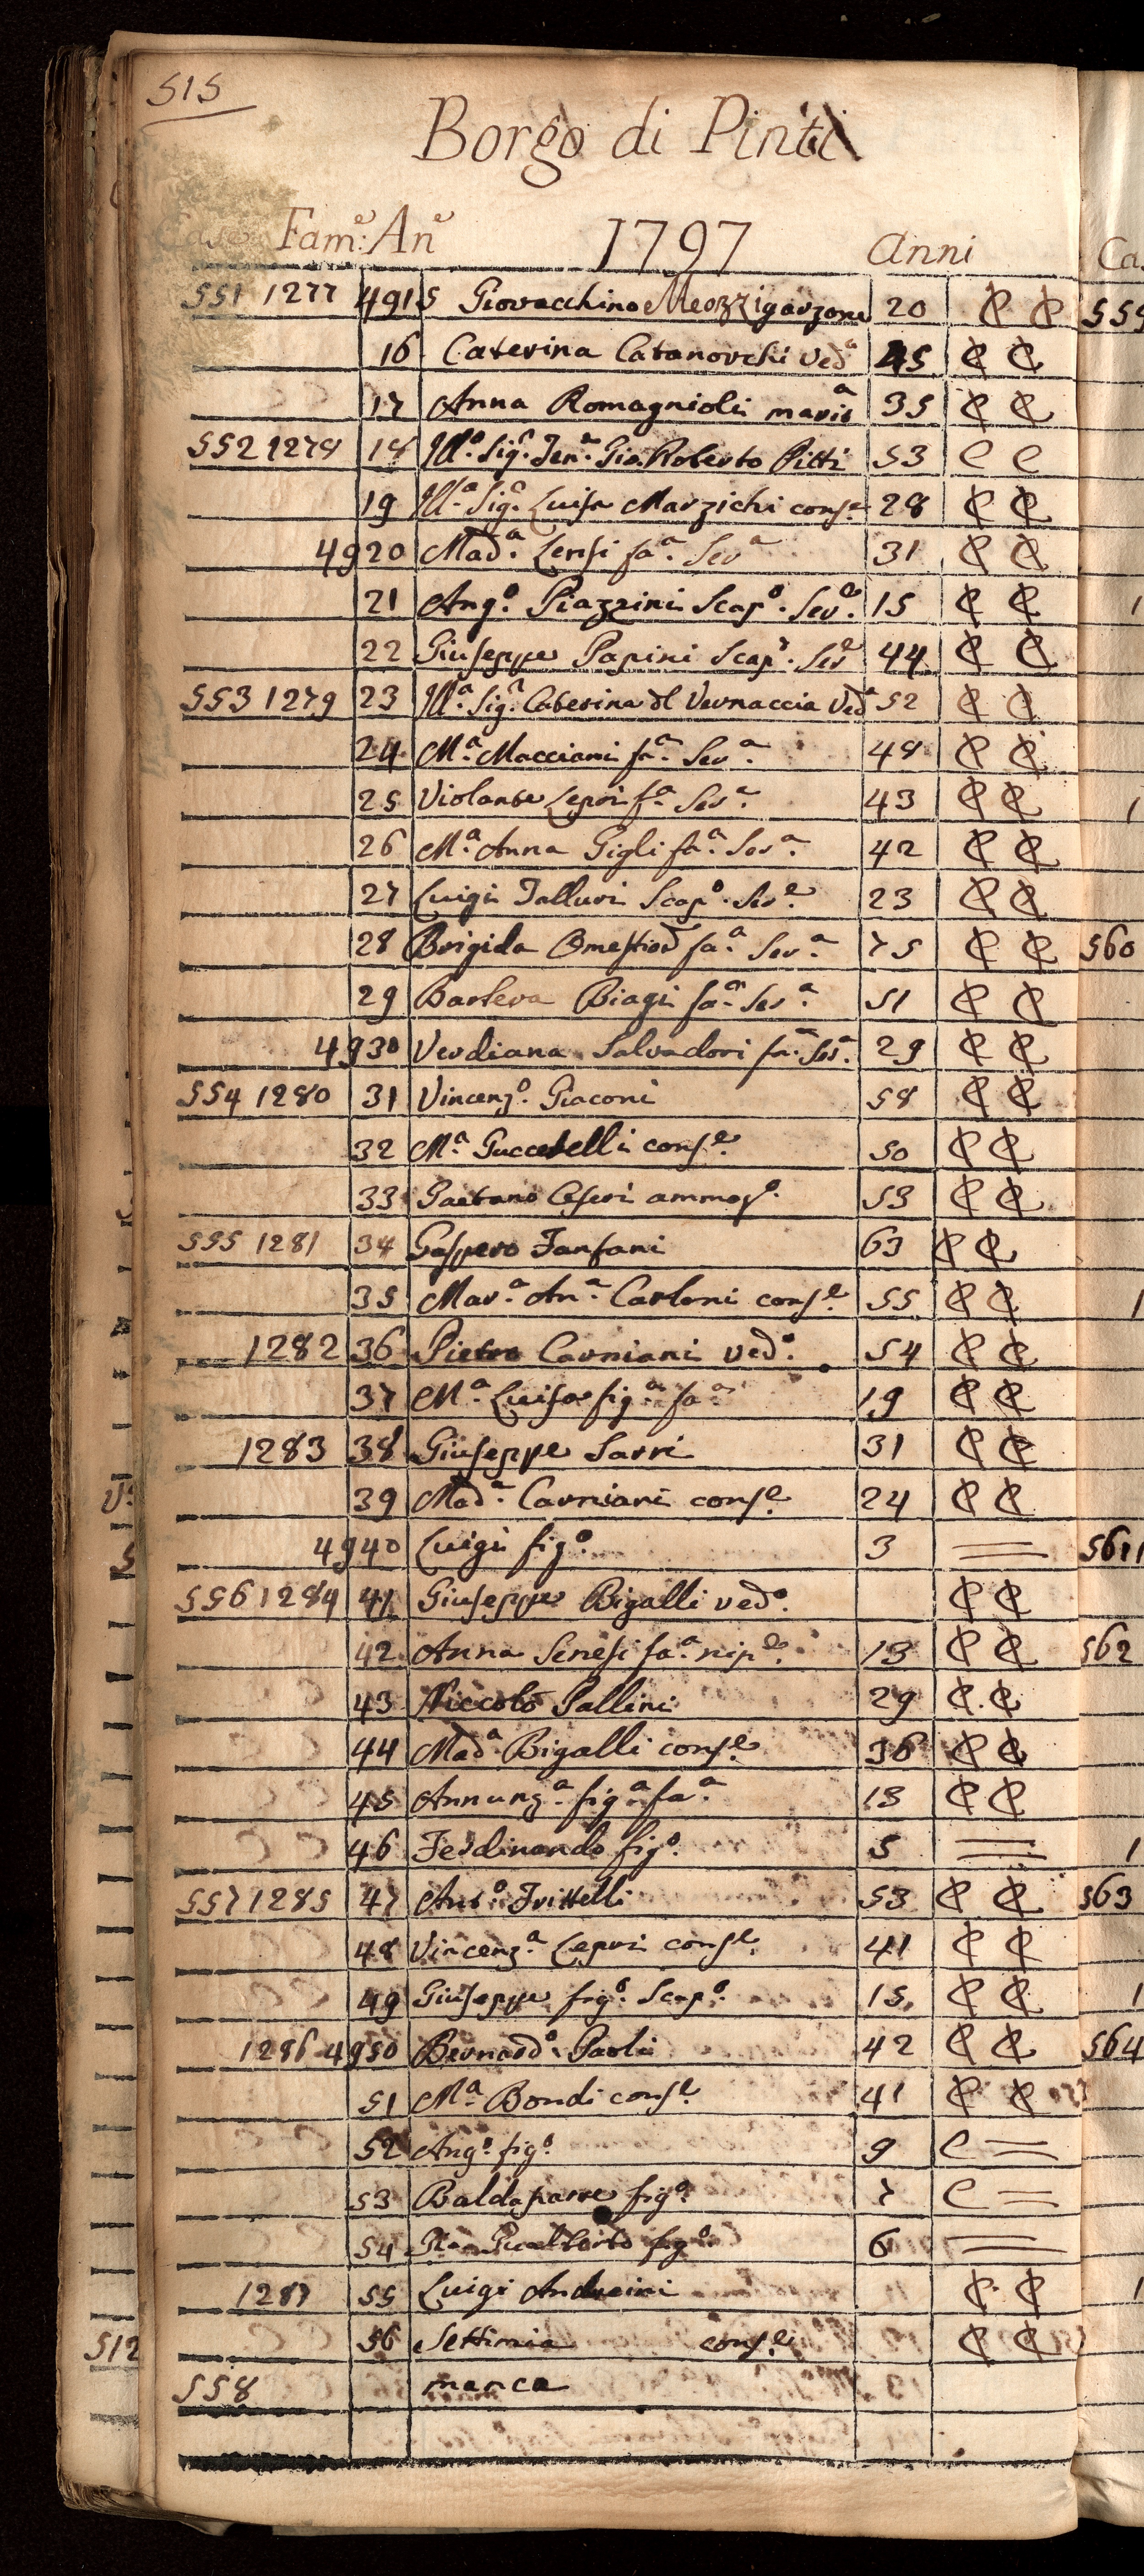 515
Borgo di Pinti
Case Fam.e: An.e 1797 Anni
551 1277 4915 Giovacchino Meozzi garzone 20 C C
16 Caterina Catanorchi Ved.a 45 C C
17 Anna Romagnioli marit.a 35 C C
552 1278 18 Ill.o Sig.r Sen.e Gio. Roberto Pitti 53 C C
19 Ill.a Sig.a Luisa Marzichi cons.e 28 C C
4920 Mad.a Lensi fa.a Ser.a 31 C C
21 Ang.o Piazzini Scap.o Ser.e 15 C C
22 Giuseppe Papini Scap.o Ser.e 44 C C
553 1279 23 Ill.a Sig.a Caterina dl Vernaccia Ved.a 52 C C
24 M.a Macciani fa.a Ser.a 48 C C
25 Violante Lepri f.a Ser.a 43 C C
26 M.a Anna Gigli fa.a Ser.a 42 C C
27 Luigi Talluri Scap.o Ser.e 23 C C
28 Brigida fa.a Ser.a 75 C C
29 Barbera Biagi fa.a Ser.a 51 C C
4930 Verdiana Salvadori fa.a Ser.a 29 C C
554 1280 31 Vincenz.o Giaconi 58 C C
32 M.a Guccerelli cons.e 50 C C
33 Gaetano Ceseri ammog.o 53 C C
555 1281 34 Gaspero Fanfani 63 C C
35 Mar.a An.a Carloni cons.e 55 C C
1282 36 Pietro Carniani ved.o 54 C C
37 M.a Luisa fig.a fa.a 19 C C
1283 38 Giuseppe Sarri 31 C C
39 Mad.a Carniani cons.e 24 C C
4940 Luigi fig.o 3 =
556 1284 41 Giuseppe Bigalli ved.o C C
42 Anna Senesi fa.a nip.e 13 C C
43 Niccolò Pallini 29 C C
44 Mad.a Bigalli cons.e 36 C C
45 Annunz.a fig.a fa.a 13 C C
46 Ferdinando fig.o 5 =
557 1285 47 Ant.o Frittelli 53 C C
48 Vincenz.a Lepri cons.e 41 C C
49 Giuseppe fig.o Scap.o 15 C C
1286 4950 Bernard.o Paoli 42 C C
51 M.a Bondi cons.e 41 C C
52 Ang.o fig.o 9 C =
53 Baldasarre fig.o 7 C =
54 Gio. Gualberto fig.o 6 =
1287 55 Luigi Andreini C C
56 Settimia cons.e C C
558 manca
512
Ca
555
560
5611
562
563
564